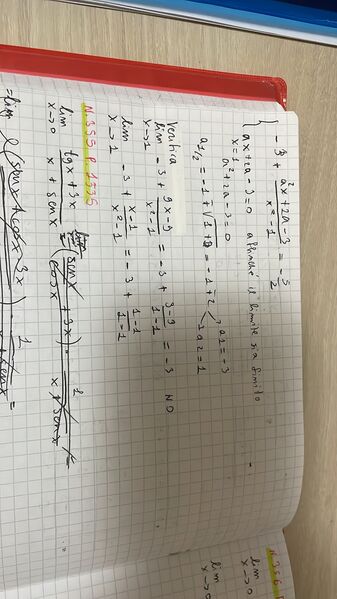 -3 + a²x+2a-3 / x²-1 = -5/2
ax+2a-3=0 affinché il limite sia finito
x=1
a²+2a-3=0
a1/2 = -1 ± √1+3 = -1 ± 2 a1=-3
a2=1
Verifica
lim x→1 -3 + 9x-9 / x²-1 = -3 + 9-9 / 1-1 = -3 NO
lim x→1 -3 + x-1 / x²-1 = -3 + 1-1 / 1-1
N.355 P.1535
lim x→0 tgx+3x / x+senx = lim (senx / cosx + 3x) · 1 / x+senx =
= lim
N.356 P
lim x→0
lim x→0